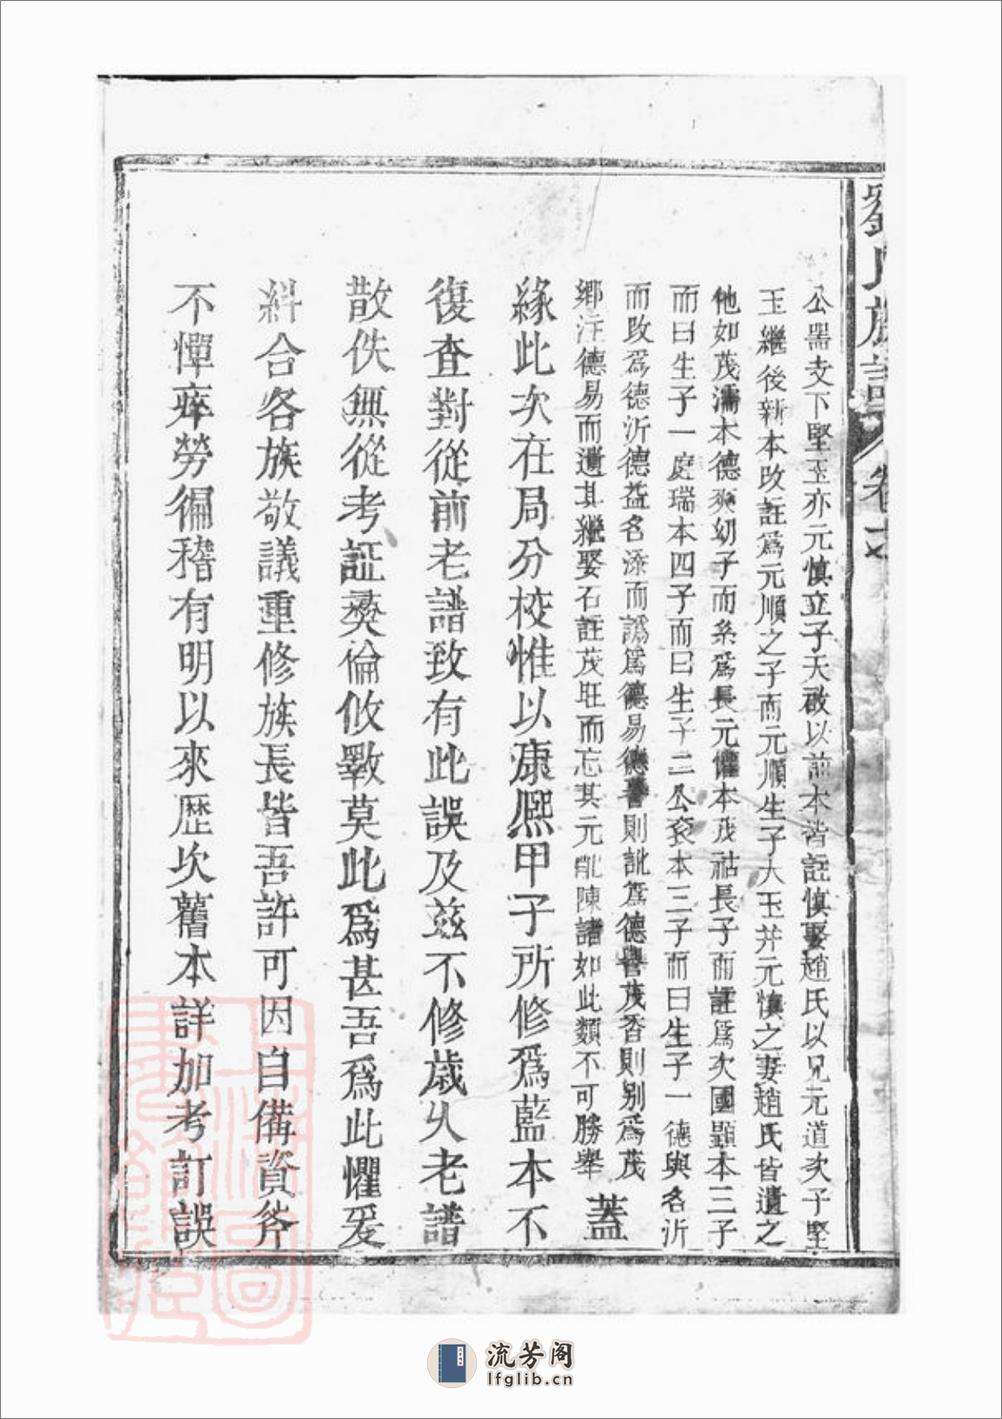 劉氏族譜 卷七
公器支下堅玉亦元慎立子天啟以前本皆註慎娶趙氏以兄元道次子堅
玉繼後新本改註為元順之子而元順生子大玉并元慎之妻趙氏皆遺之
他如茂濡本德爽幼子而系為長元懽本茂祜長子而註為次國顯本三子
而曰生子一庭瑞本四子而曰生子二公袞本三子而曰生子一德與名沂
而改為德沂德益名添而譌為德易德譽則訛為德譽茂香則別為茂
鄉注德易而遺其繼娶石註茂旺而忘其元配陳諸如此類不可勝舉 蓋
緣此次在局分校惟以康熙甲子所修為藍本不
復查對從前老譜致有此誤及茲不修歲久老譜
散佚無從考証彝倫攸斁莫此為甚吾為此懼爰
糾合各族敬議重修族長皆吾許可因自備資斧
不憚瘁勞徧稽有明以來歷次舊本詳加考訂誤
流芳阁
lfglib.cn